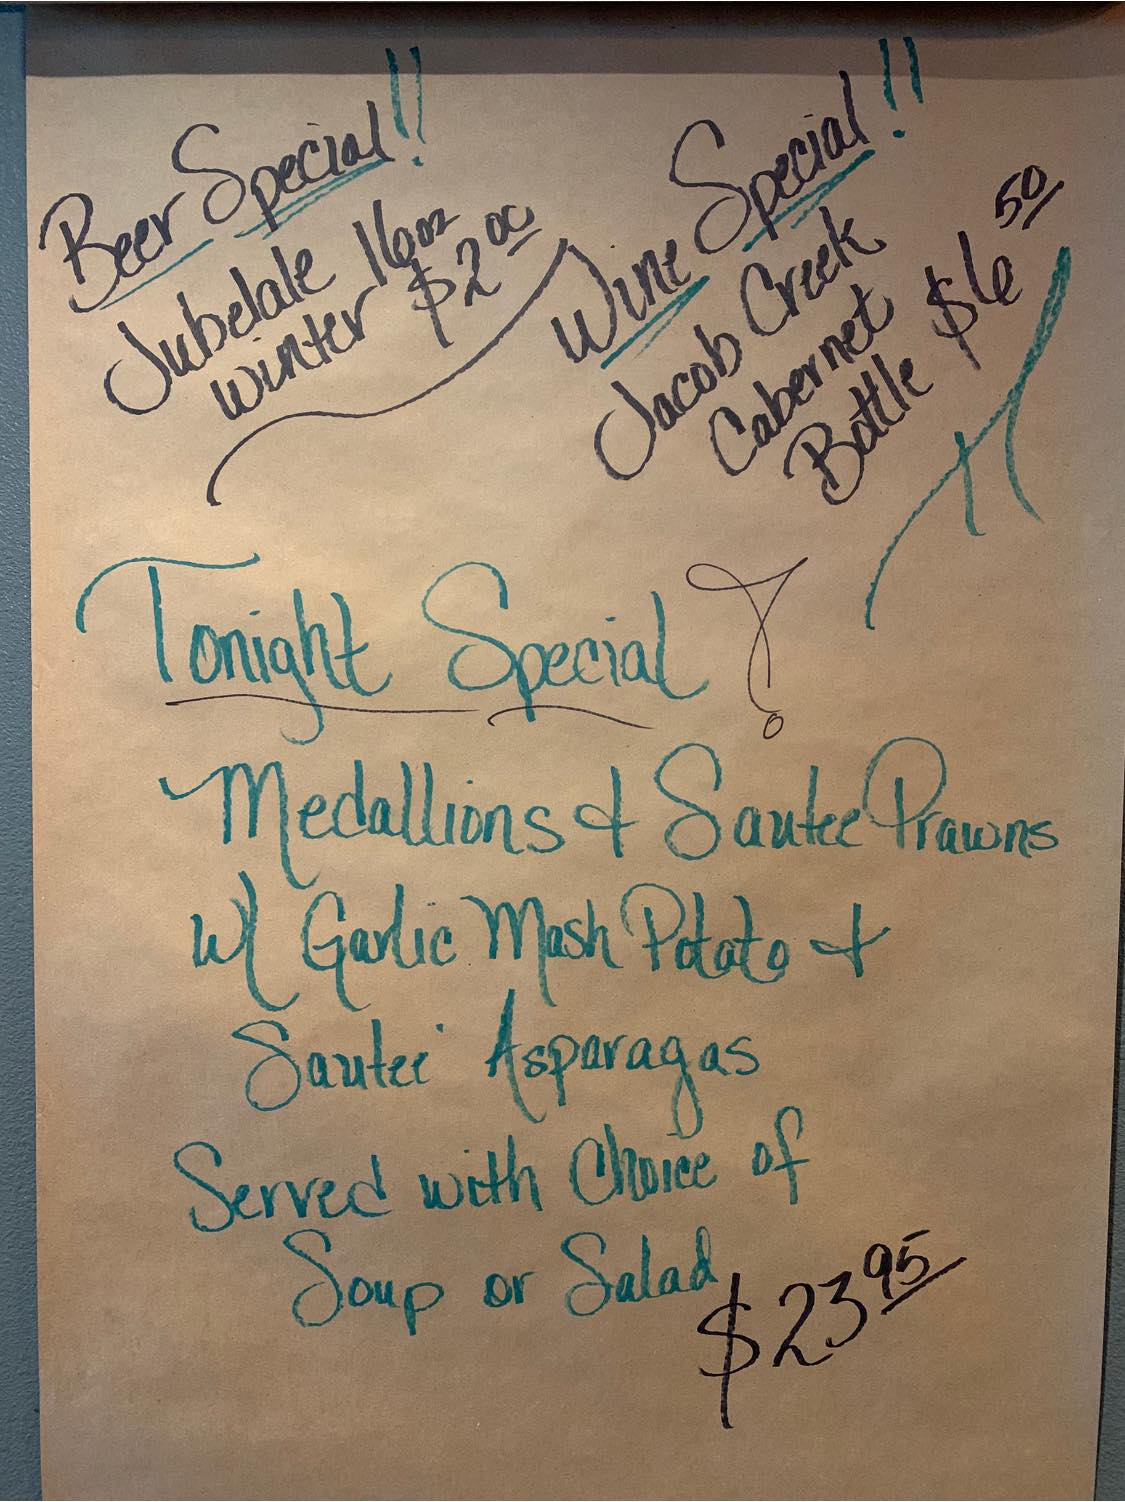 Beer Special!!
Jubelale 16oz
winter $2.00
Wine Special!!
Jacob Creek
Cabernet
Bottle $6.50
Tonight Special
Medallions & Sautee Prawns
w/ Garlic Mash Potato &
Sautee Asparagas
Served with Choice of
Soup or Salad
$23.95